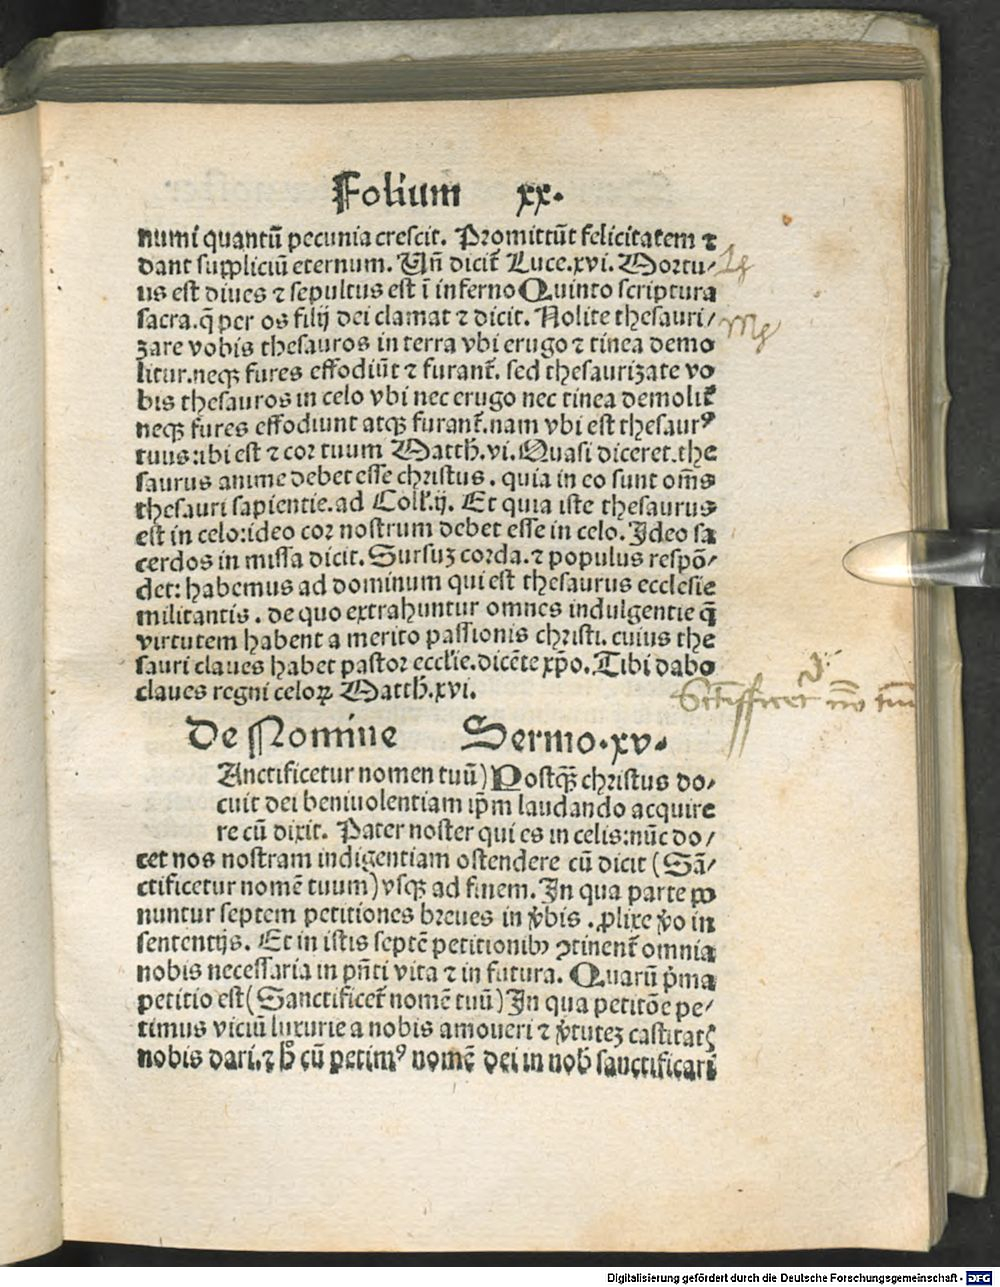 Folium xx.
numi quantũ pecunia crescit. Promittũt felicitatem ⁊
dant suppliciũ eternum. Uñ dicit̃ Luce.xvi. Mortu/
us est diues ⁊ sepultus est ĩ inferno Quinto scriptura
sacra.q̃ per os filij dei clamat ⁊ dicit. Nolite thesauri/
zare vobis thesauros in terra vbi erugo ⁊ tinea demo
litur.neqꝫ fures effodiũt ⁊ furant̃. sed thesaurizate vo
bis thesauros in celo vbi nec erugo nec tinea demolit̃
neqꝫ fures effodiunt atqꝫ furant̃.nam vbi est thesaurꝰ
tuus:ibi est ⁊ cor tuum Matth̃.vi. Quasi diceret.the
saurus anime debet esse christus. quia in eo sunt om̃s
thesauri sapientie.ad Coll̃.ij. Et quia iste thesaurus
est in celo:ideo cor nostrum debet esse in celo. Ideo sa
cerdos in missa dicit. Sursuꝫ corda.⁊ populus respõ/
det: habemus ad dominum qui est thesaurus ecclesie
militantis. de quo extrahuntur omnes indulgentie q̃
virtutem habent a merito passionis christi. cuius the
sauri claues habet pastor eccl̃ie.dicẽte xp̃o. Tibi dabo
claues regni celoꝝ Matth̃.xvi.
De Nomine Sermo.xv.
Anctificetur nomen tuũ) Postqꝫ̃ christus do/
cuit dei beniuolentiam ip̃m laudando acquire
re cũ dixit. Pater noster qui es in celis:nũc do/
cet nos nostram indigentiam ostendere cũ dicit (Sã/
ctificetur nomẽ tuum) vsqꝫ ad finem. In qua parte po
nuntur septem petitiones breues in v̾bis. ꝓlixe v̾o in
sententijs. Et in istis septẽ petitionibꝫ ꝯtinent̃ omnia
nobis necessaria in pñti vita ⁊ in futura. Quarũ p̃ma
petitio est (Sanctificet̃ nomẽ tuũ) In qua petitõe pe/
timus viciũ luxurie a nobis amoueri ⁊ v̾tuteꝫ castitatꝭ
nobis dari.⁊ h̾ cũ petimꝰ nomẽ dei in nob̾ sanctificari
Digitalisierung gefördert durch die Deutsche Forschungsgemeinschaft - DFG